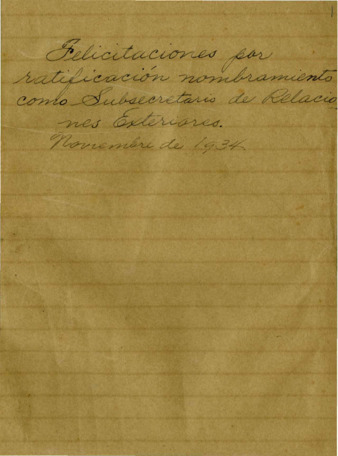 Felicitaciones por
ratificación nombramiento
como Subsecretario de Relacio-
nes Exteriores.
Noviembre de 1934